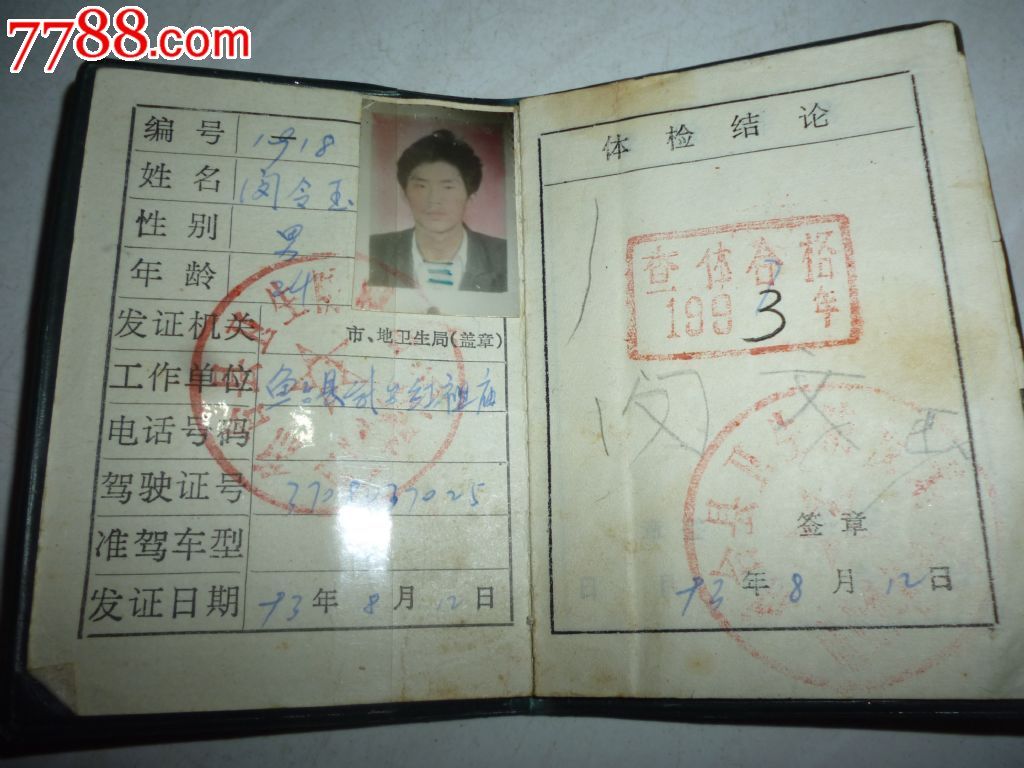 7788.com
编号 1918
姓名 闵令玉
性别 男
年龄 24
发证机关 市、地卫生局(盖章)
工作单位 鱼台县
电话号码
驾驶证号 3708037025
准驾车型
发证日期 93年8月12日
体检结论
查体合格
1993年
签章
93年8月12日